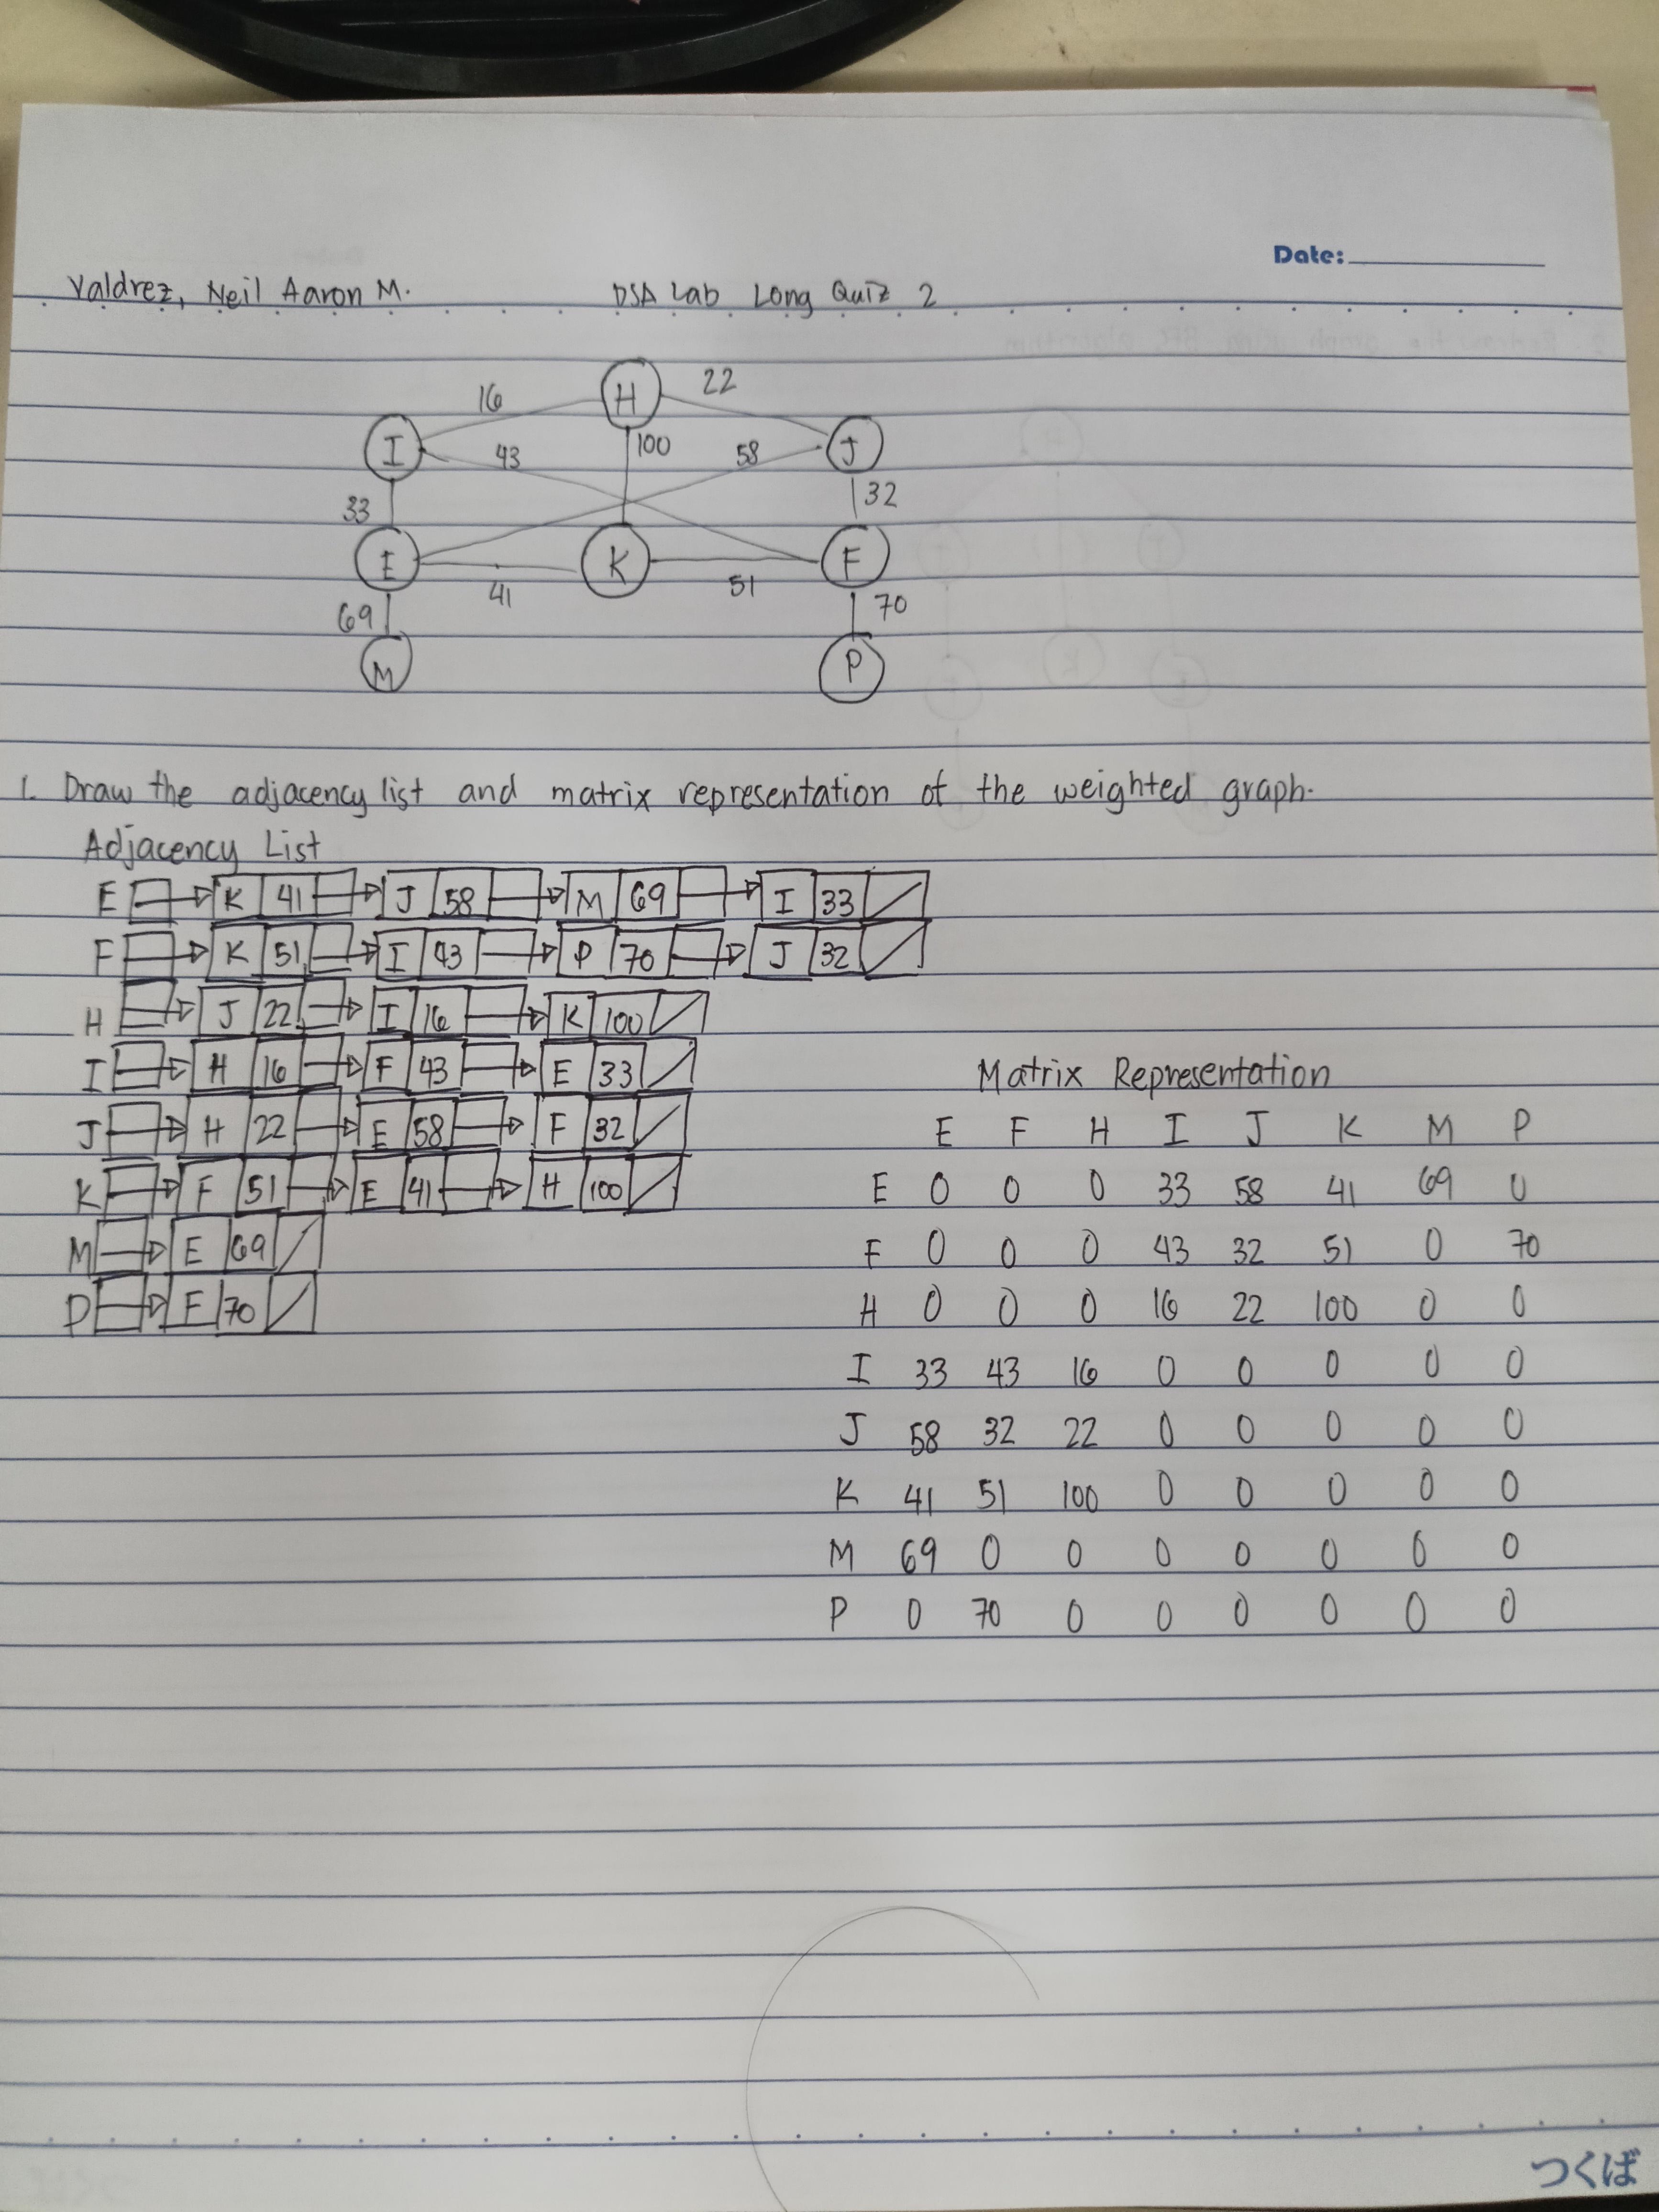 Date:
Valdrez, Neil Aaron M. DSA Lab Long Quiz 2
H
16 22
I J
43 100 58
33 32
E K F
41 51
69 70
M P
1. Draw the adjacency list and matrix representation of the weighted graph.
Adjacency List
E K 41 J 58 M 69 I 33
F K 51 I 43 P 70 J 32
H J 22 I 16 K 100
I H 16 F 43 E 33
J H 22 E 58 F 32
K F 51 E 41 H 100
M E 69
P F 70
Matrix Representation
E F H I J K M P
E 0 0 0 33 58 41 69 0
F 0 0 0 43 32 51 0 70
H 0 0 0 16 22 100 0 0
I 33 43 16 0 0 0 0 0
J 58 32 22 0 0 0 0 0
K 41 51 100 0 0 0 0 0
M 69 0 0 0 0 0 0 0
P 0 70 0 0 0 0 0 0
つくば